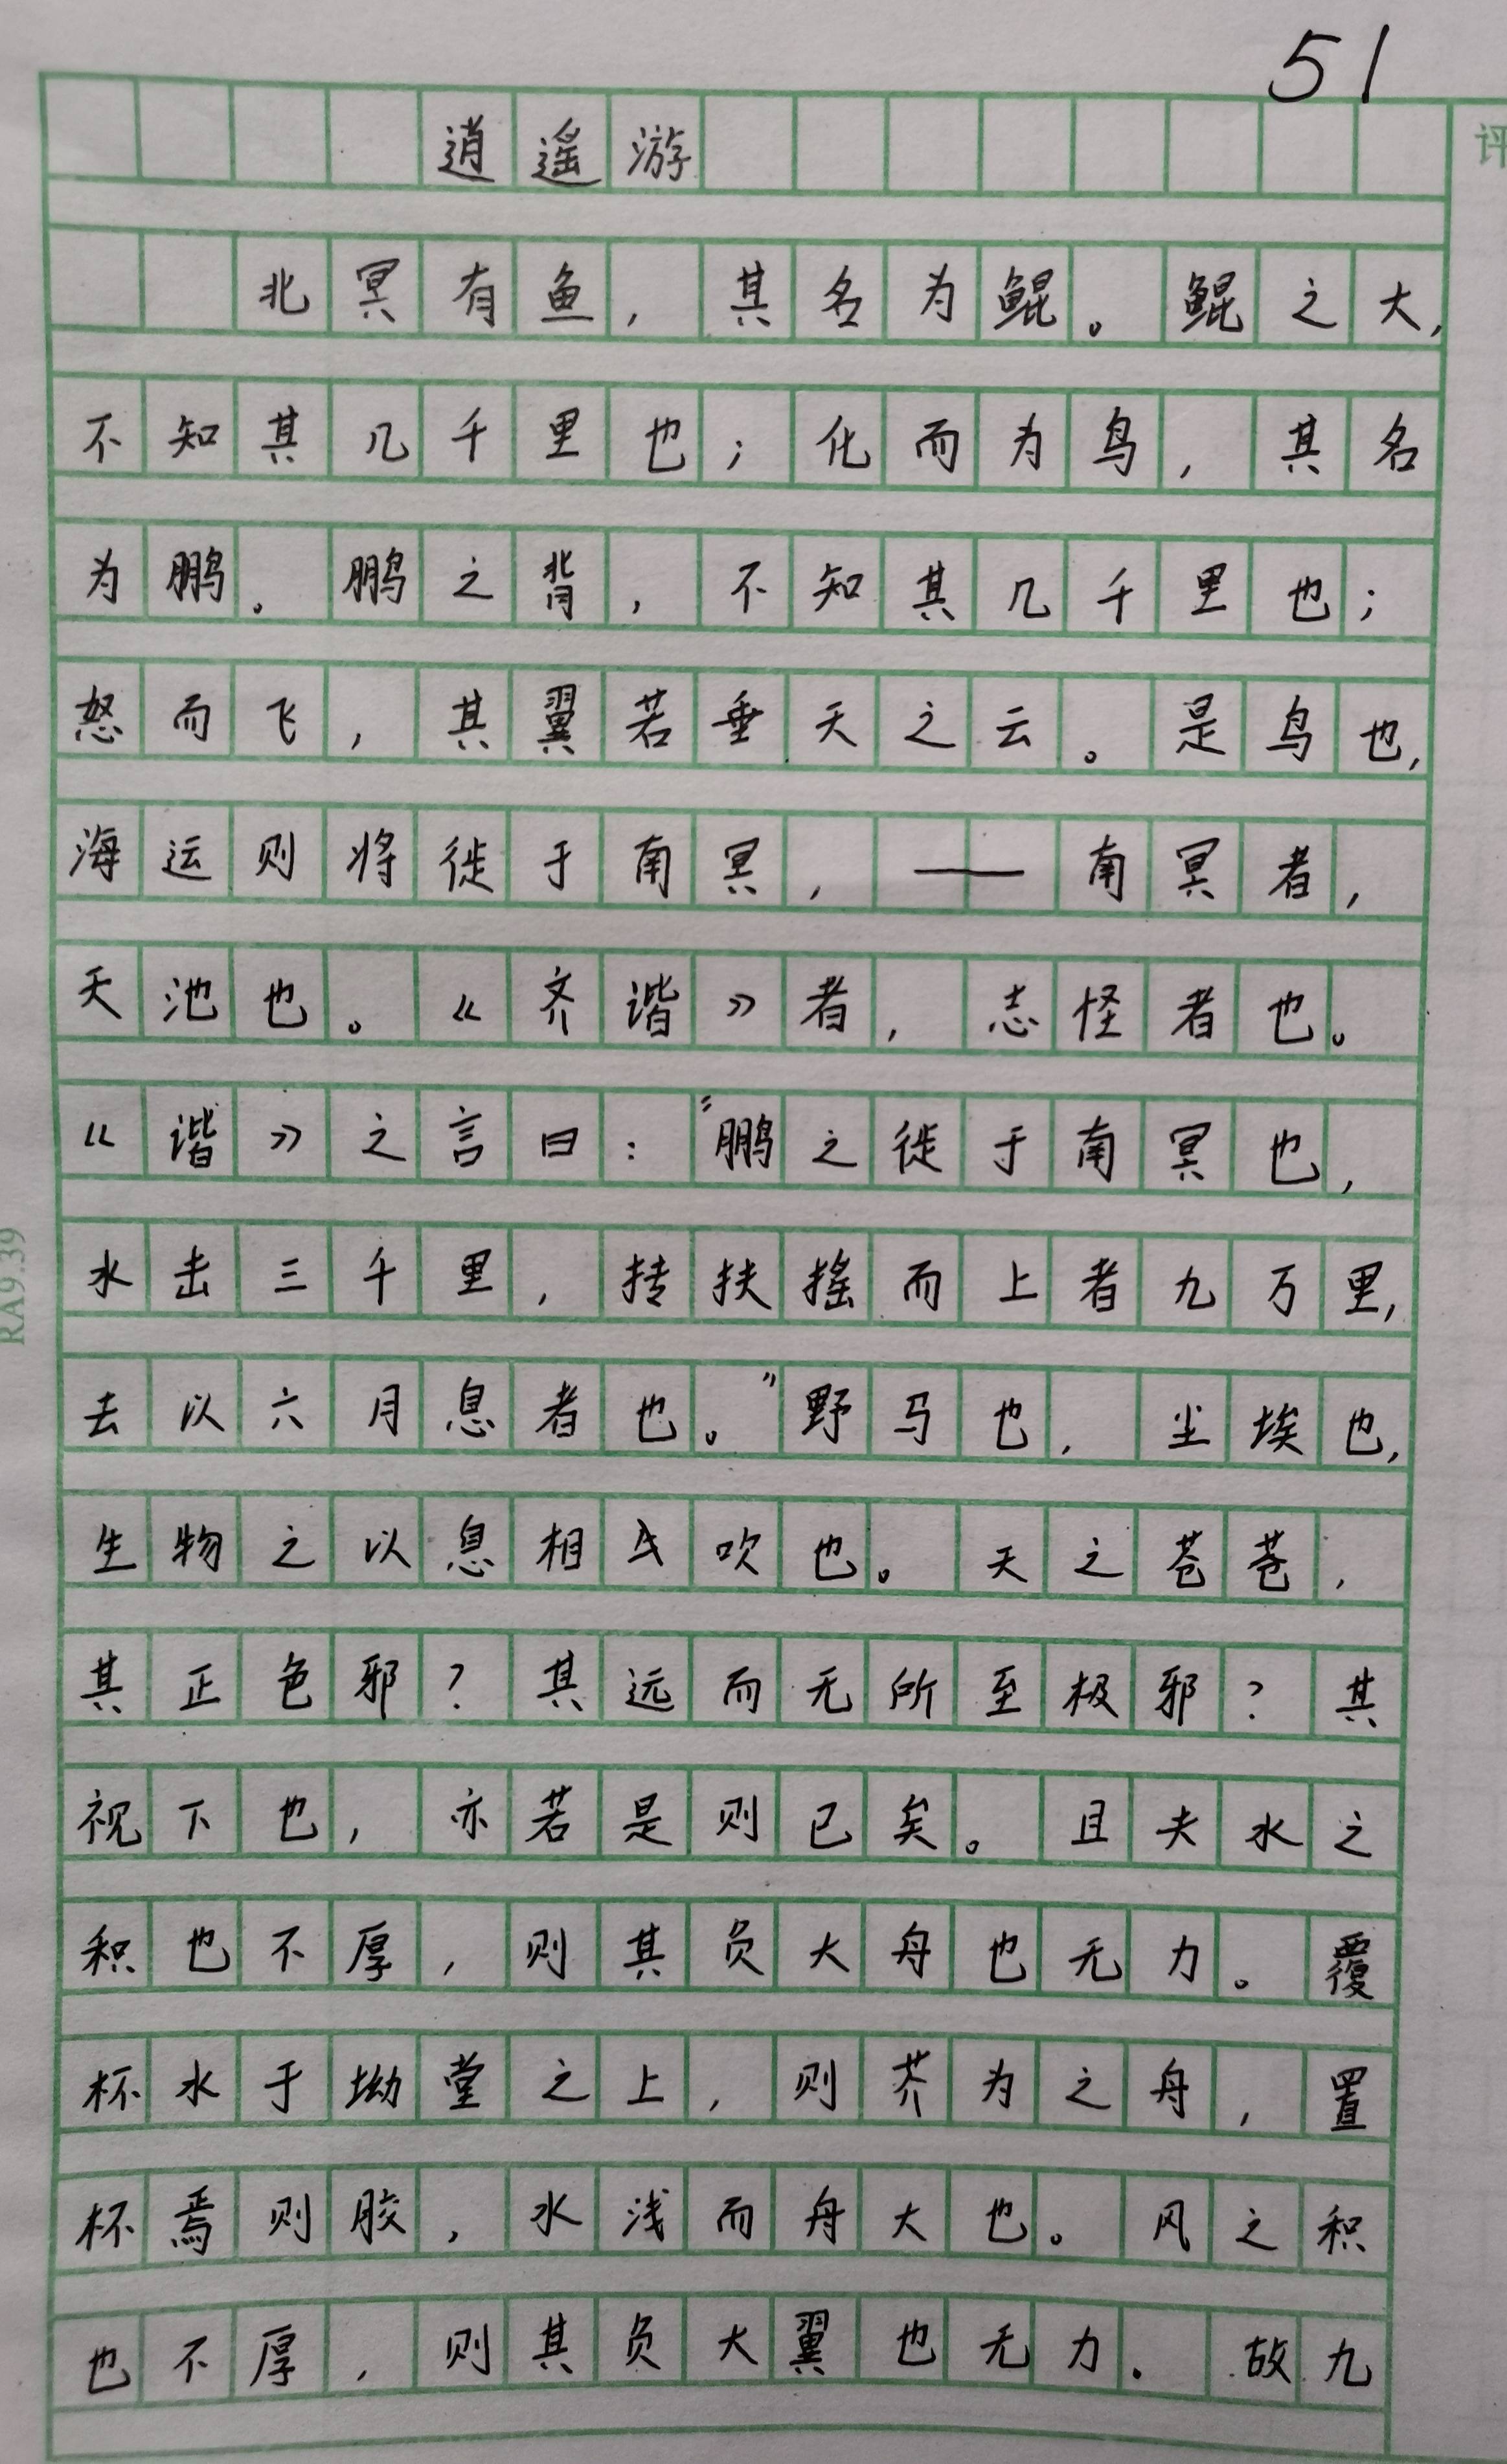 51
评
逍遥游
北冥有鱼，其名为鲲。鲲之大，
不知其几千里也；化而为鸟，其名
为鹏。鹏之背，不知其几千里也；
怒而飞，其翼若垂天之云。是鸟也，
海运则将徙于南冥，——南冥者，
天池也。《齐谐》者，志怪者也。
《谐》之言曰：“鹏之徙于南冥也，
水击三千里，抟扶摇而上者九万里，
去以六月息者也。”野马也，尘埃也，
生物之以息相吹也。天之苍苍，
其正色邪？其远而无所至极邪？其
视下也，亦若是则已矣。且夫水之
积也不厚，则其负大舟也无力。覆
杯水于坳堂之上，则芥为之舟，置
杯焉则胶，水浅而舟大也。风之积
也不厚，则其负大翼也无力。故九
RA9.39